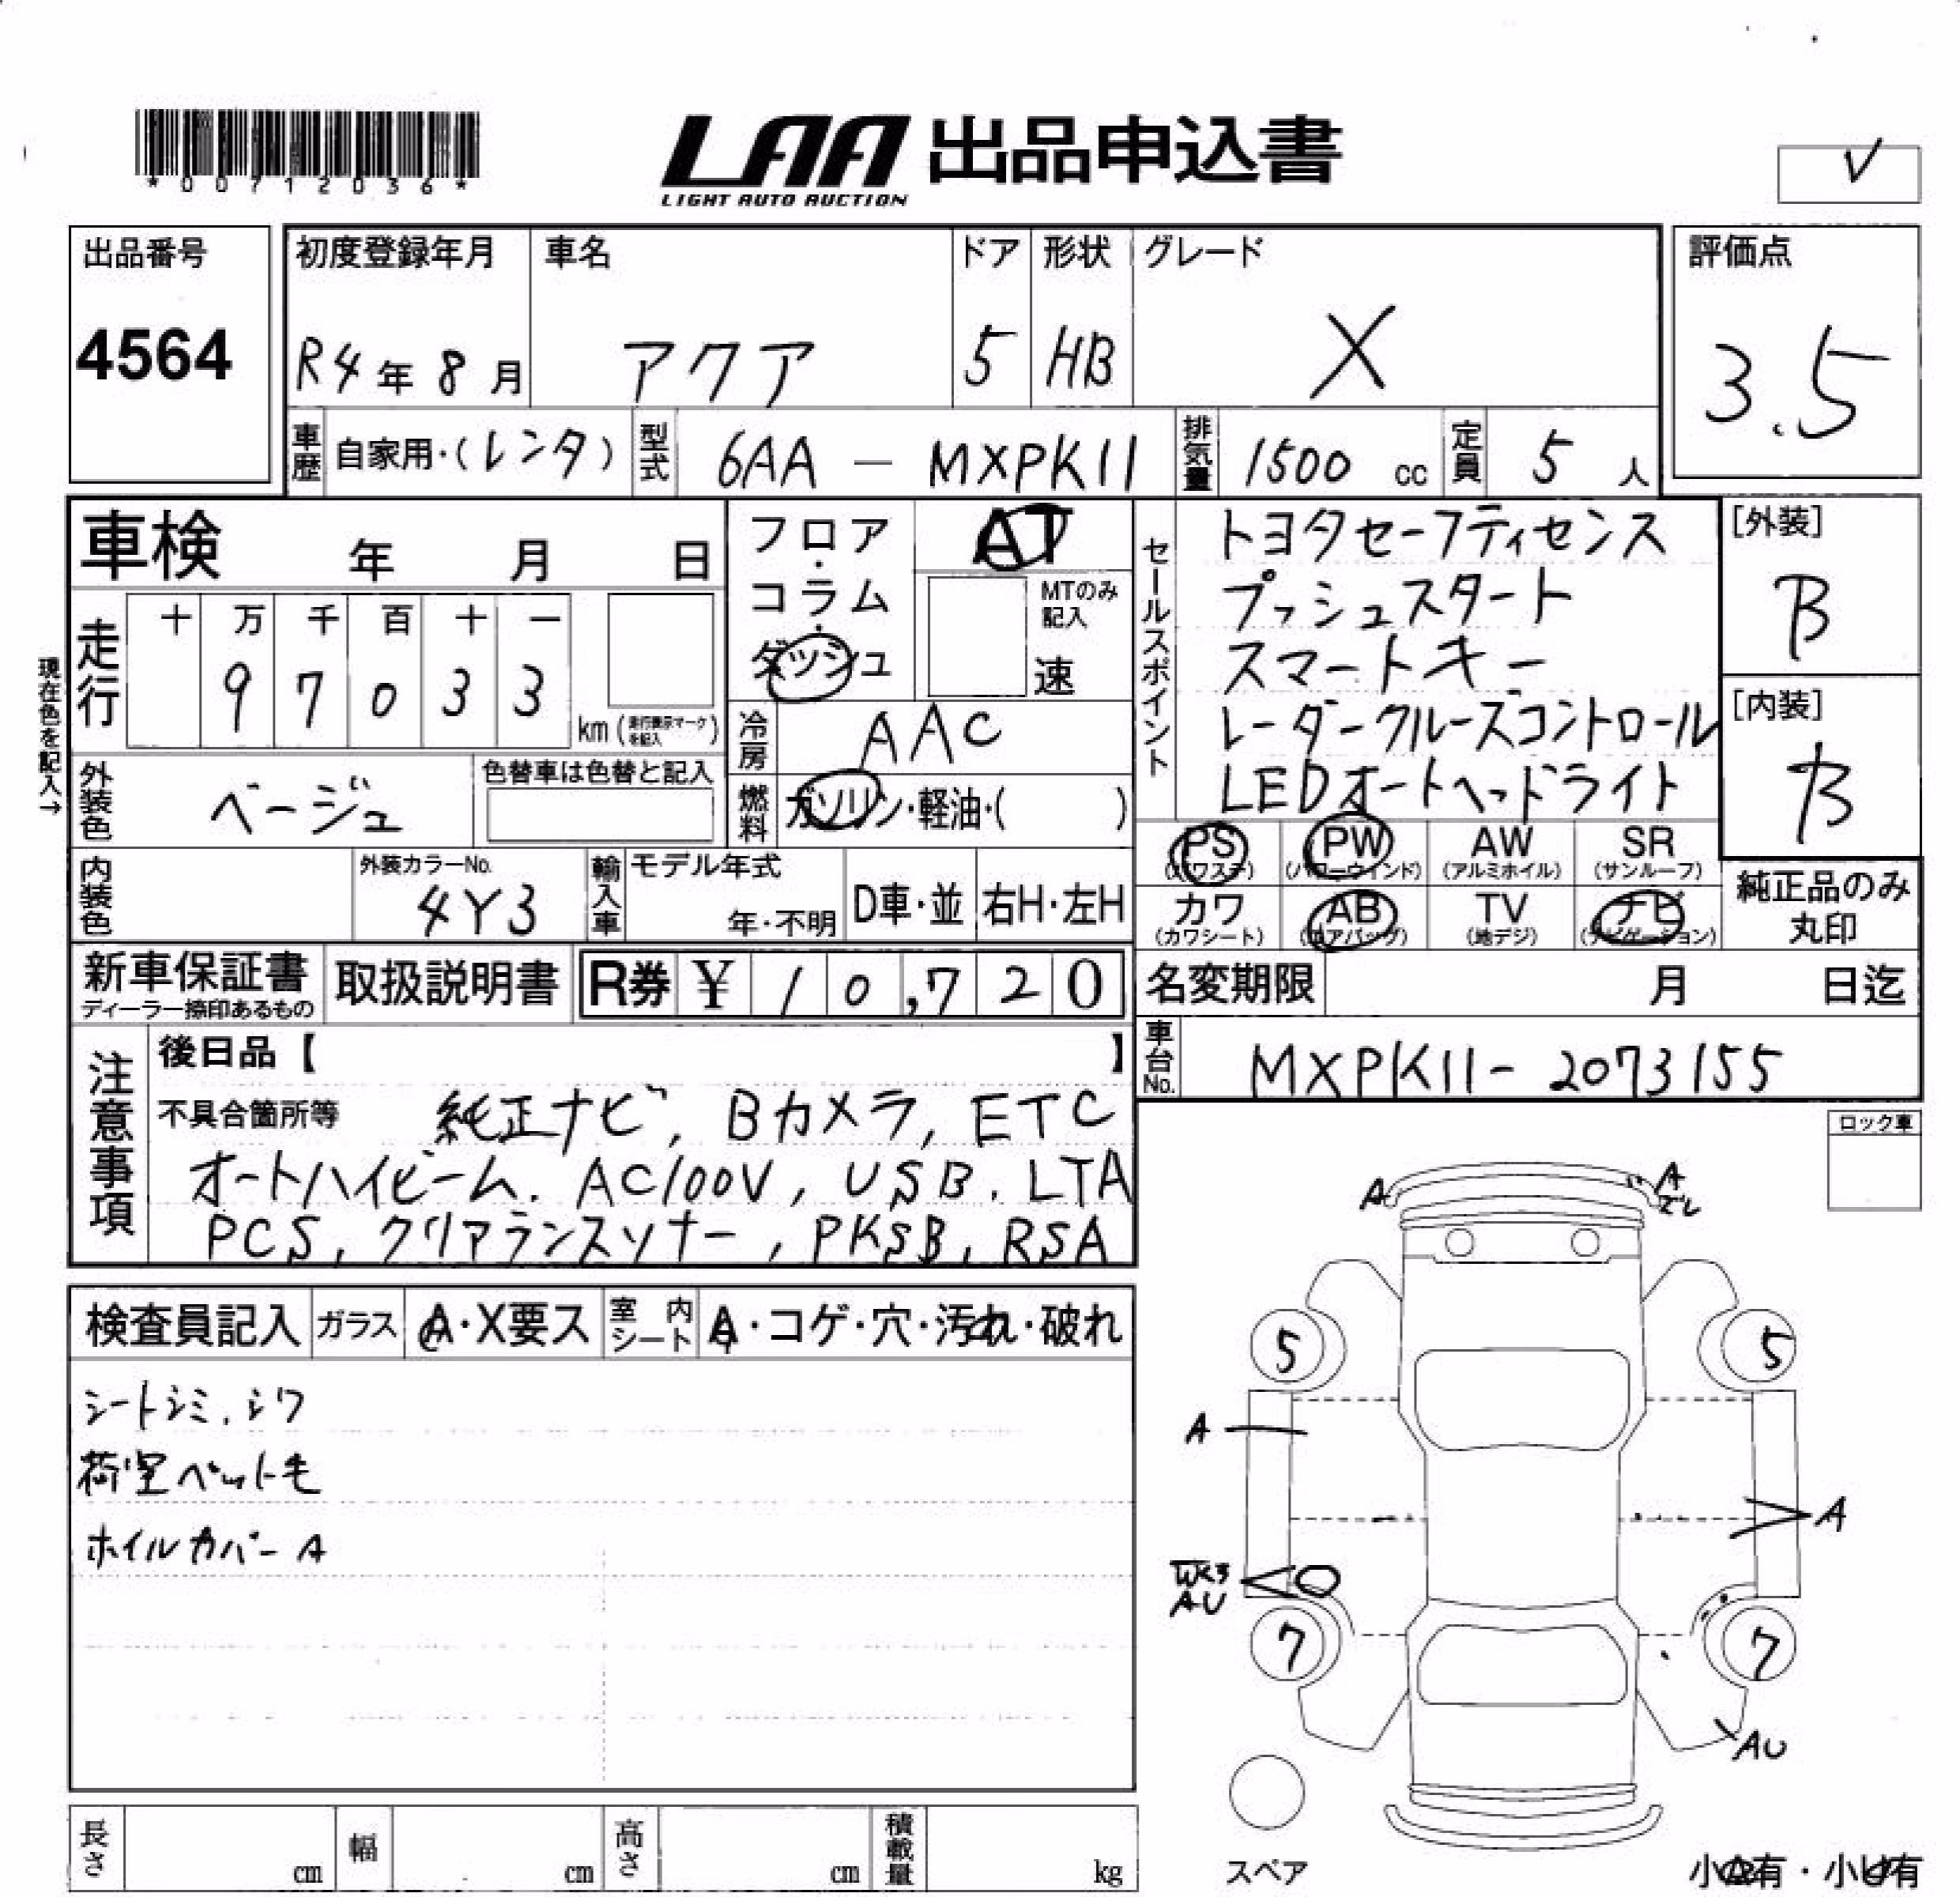 *00712036*
LAA 出品申込書
LIGHT AUTO AUCTION
V
出品番号
4564
初度登録年月
R4年8月
車名
アクア
ドア
5
形状
HB
グレード
X
評価点
3.5
車歴 自家用・(レンタ)
型式 6AA - MXPK11
排気量 1500 cc
定員 5 人
車検 年 月 日
走行
十 万 千 百 十 一
9 7 0 3 3
km(走行表示マークを記入)
現在色を記入→
外装色 ベージュ
色替車は色替と記入
内装色
外装カラーNo.
4Y3
フロア・コラム・ダッシュ
AT
MTのみ記入
速
冷房 AAC
燃料 ガソリン・軽油・( )
輸入車 モデル年式
年・不明
D車・並
右H・左H
セールスポイント
トヨタセーフティセンス
プッシュスタート
スマートキー
レーダークルーズコントロール
LEDオートヘッドライト
[外装]
B
[内装]
B
PS (パワステ)
PW (パワーウィンド)
AW (アルミホイル)
SR (サンルーフ)
カワ (カワシート)
AB (エアバッグ)
TV (地デジ)
ナビ (ナビゲーション)
純正品のみ
丸印
新車保証書
ディーラー捺印あるもの
取扱説明書
R券 ¥ 10,720
名変期限 月 日迄
車台No. MXPK11- 2073155
注意事項
後日品【 】
不具合箇所等 純正ナビ, Bカメラ, ETC
オートハイビーム. AC100V, USB. LTA
PCS, クリアランスソナー, PKSB, RSA
ロック車
検査員記入
ガラス A・X要ス
室内シート A・コゲ・穴・汚れ・破れ
シートシミ.シワ
荷室ペット毛
ホイルカバーA
A
A
ズレ
5
5
A
A
WK3
AU
7
7
AU
スペア
小A有・小U有
長さ cm
幅 cm
高さ cm
積載量 kg